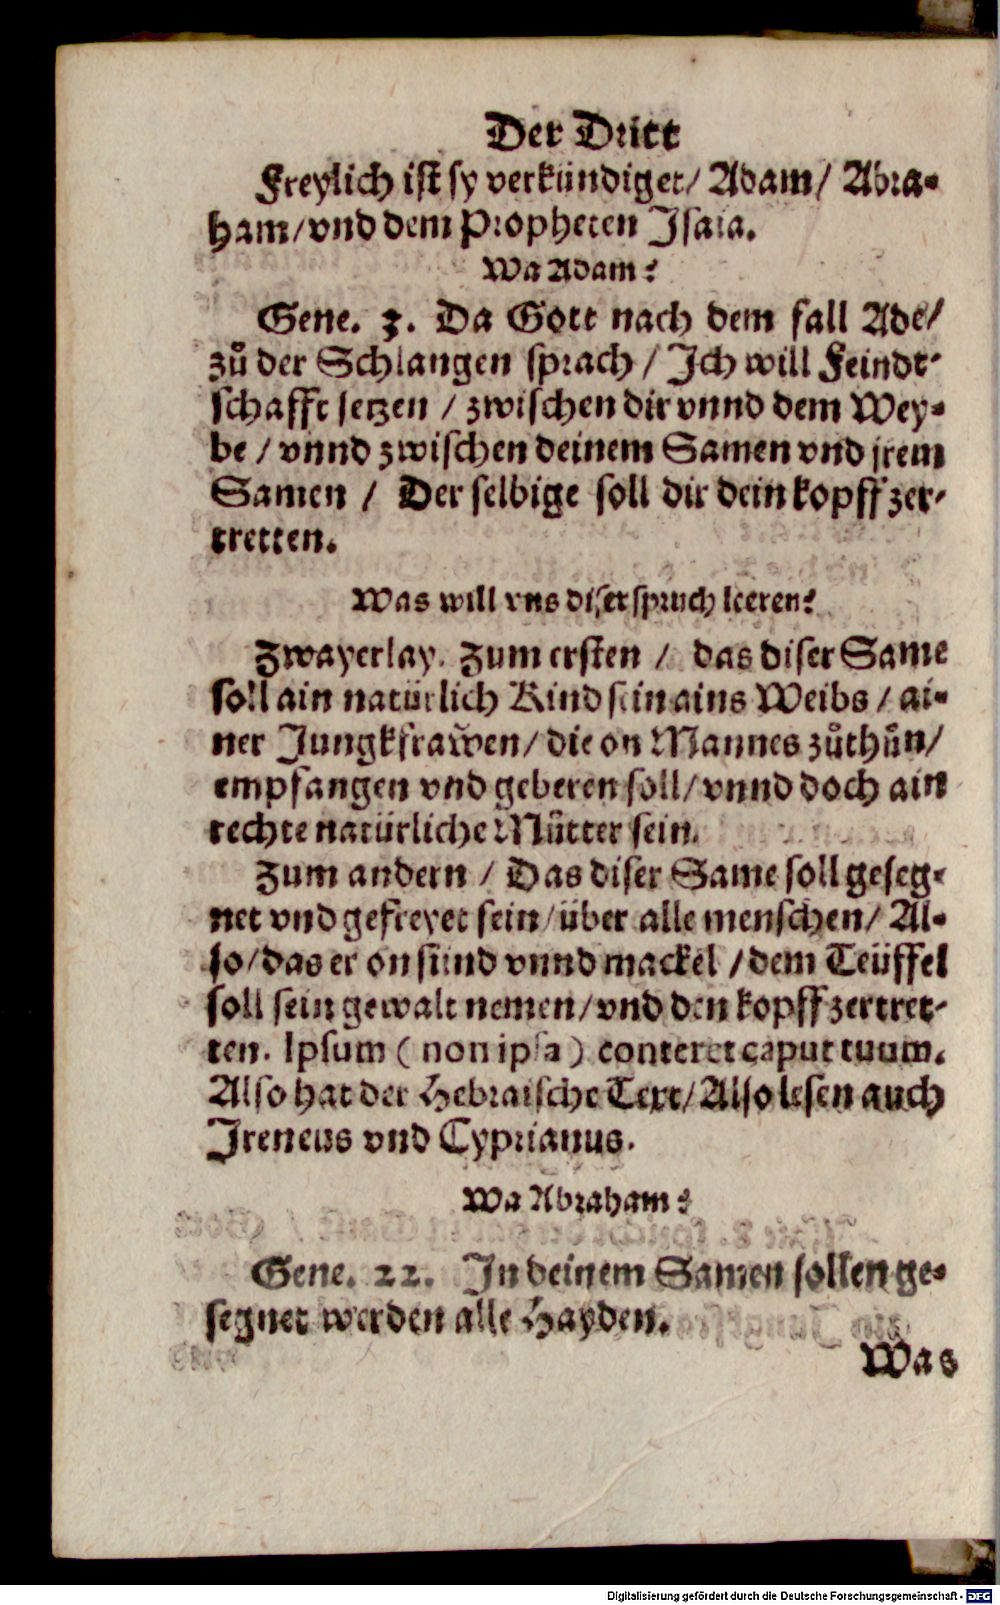 Der Dritt
Freylich ist sy verkündiget/ Adam/ Abra-
ham/ vnd dem Propheten Jsaia.
Wa Adam?
Gene. 3. Da Gott nach dem fall Ade/
zů der Schlangen sprach / Jch will Feindt-
schafft setzen / zwischen dir vnnd dem Wey-
be / vnnd zwischen deinem Samen vnd jrem
Samen / Der selbige soll dir dein kopff zer-
tretten.
Was will vns diser spruch leeren?
Zwayerlay. Zum ersten / das diser Same
soll ain natürlich Kind sein ains Weibs / ai-
ner Jungkfrawen/ die on Mannes zůthůn/
empfangen vnd geberen soll/ vnnd doch ain
rechte natürliche Můtter sein.
Zum andern / Das diser Same soll geseg-
net vnd gefreyet sein/ über alle menschen/ Al-
so/ das er on sünd vnnd mackel / dem Teüffel
soll sein gewalt nemen/ vnd den kopff zertret-
ten. Ipsum ( non ipsa ) conteret caput tuum.
Also hat der Hebraische Text/ Also lesen auch
Jreneus vnd Cyprianus.
Wa Abraham?
Gene. 22. Jn deinem Samen sollen ge-
segnet werden alle Hayden.
Was
Digitalisierung gefördert durch die Deutsche Forschungsgemeinschaft - DFG